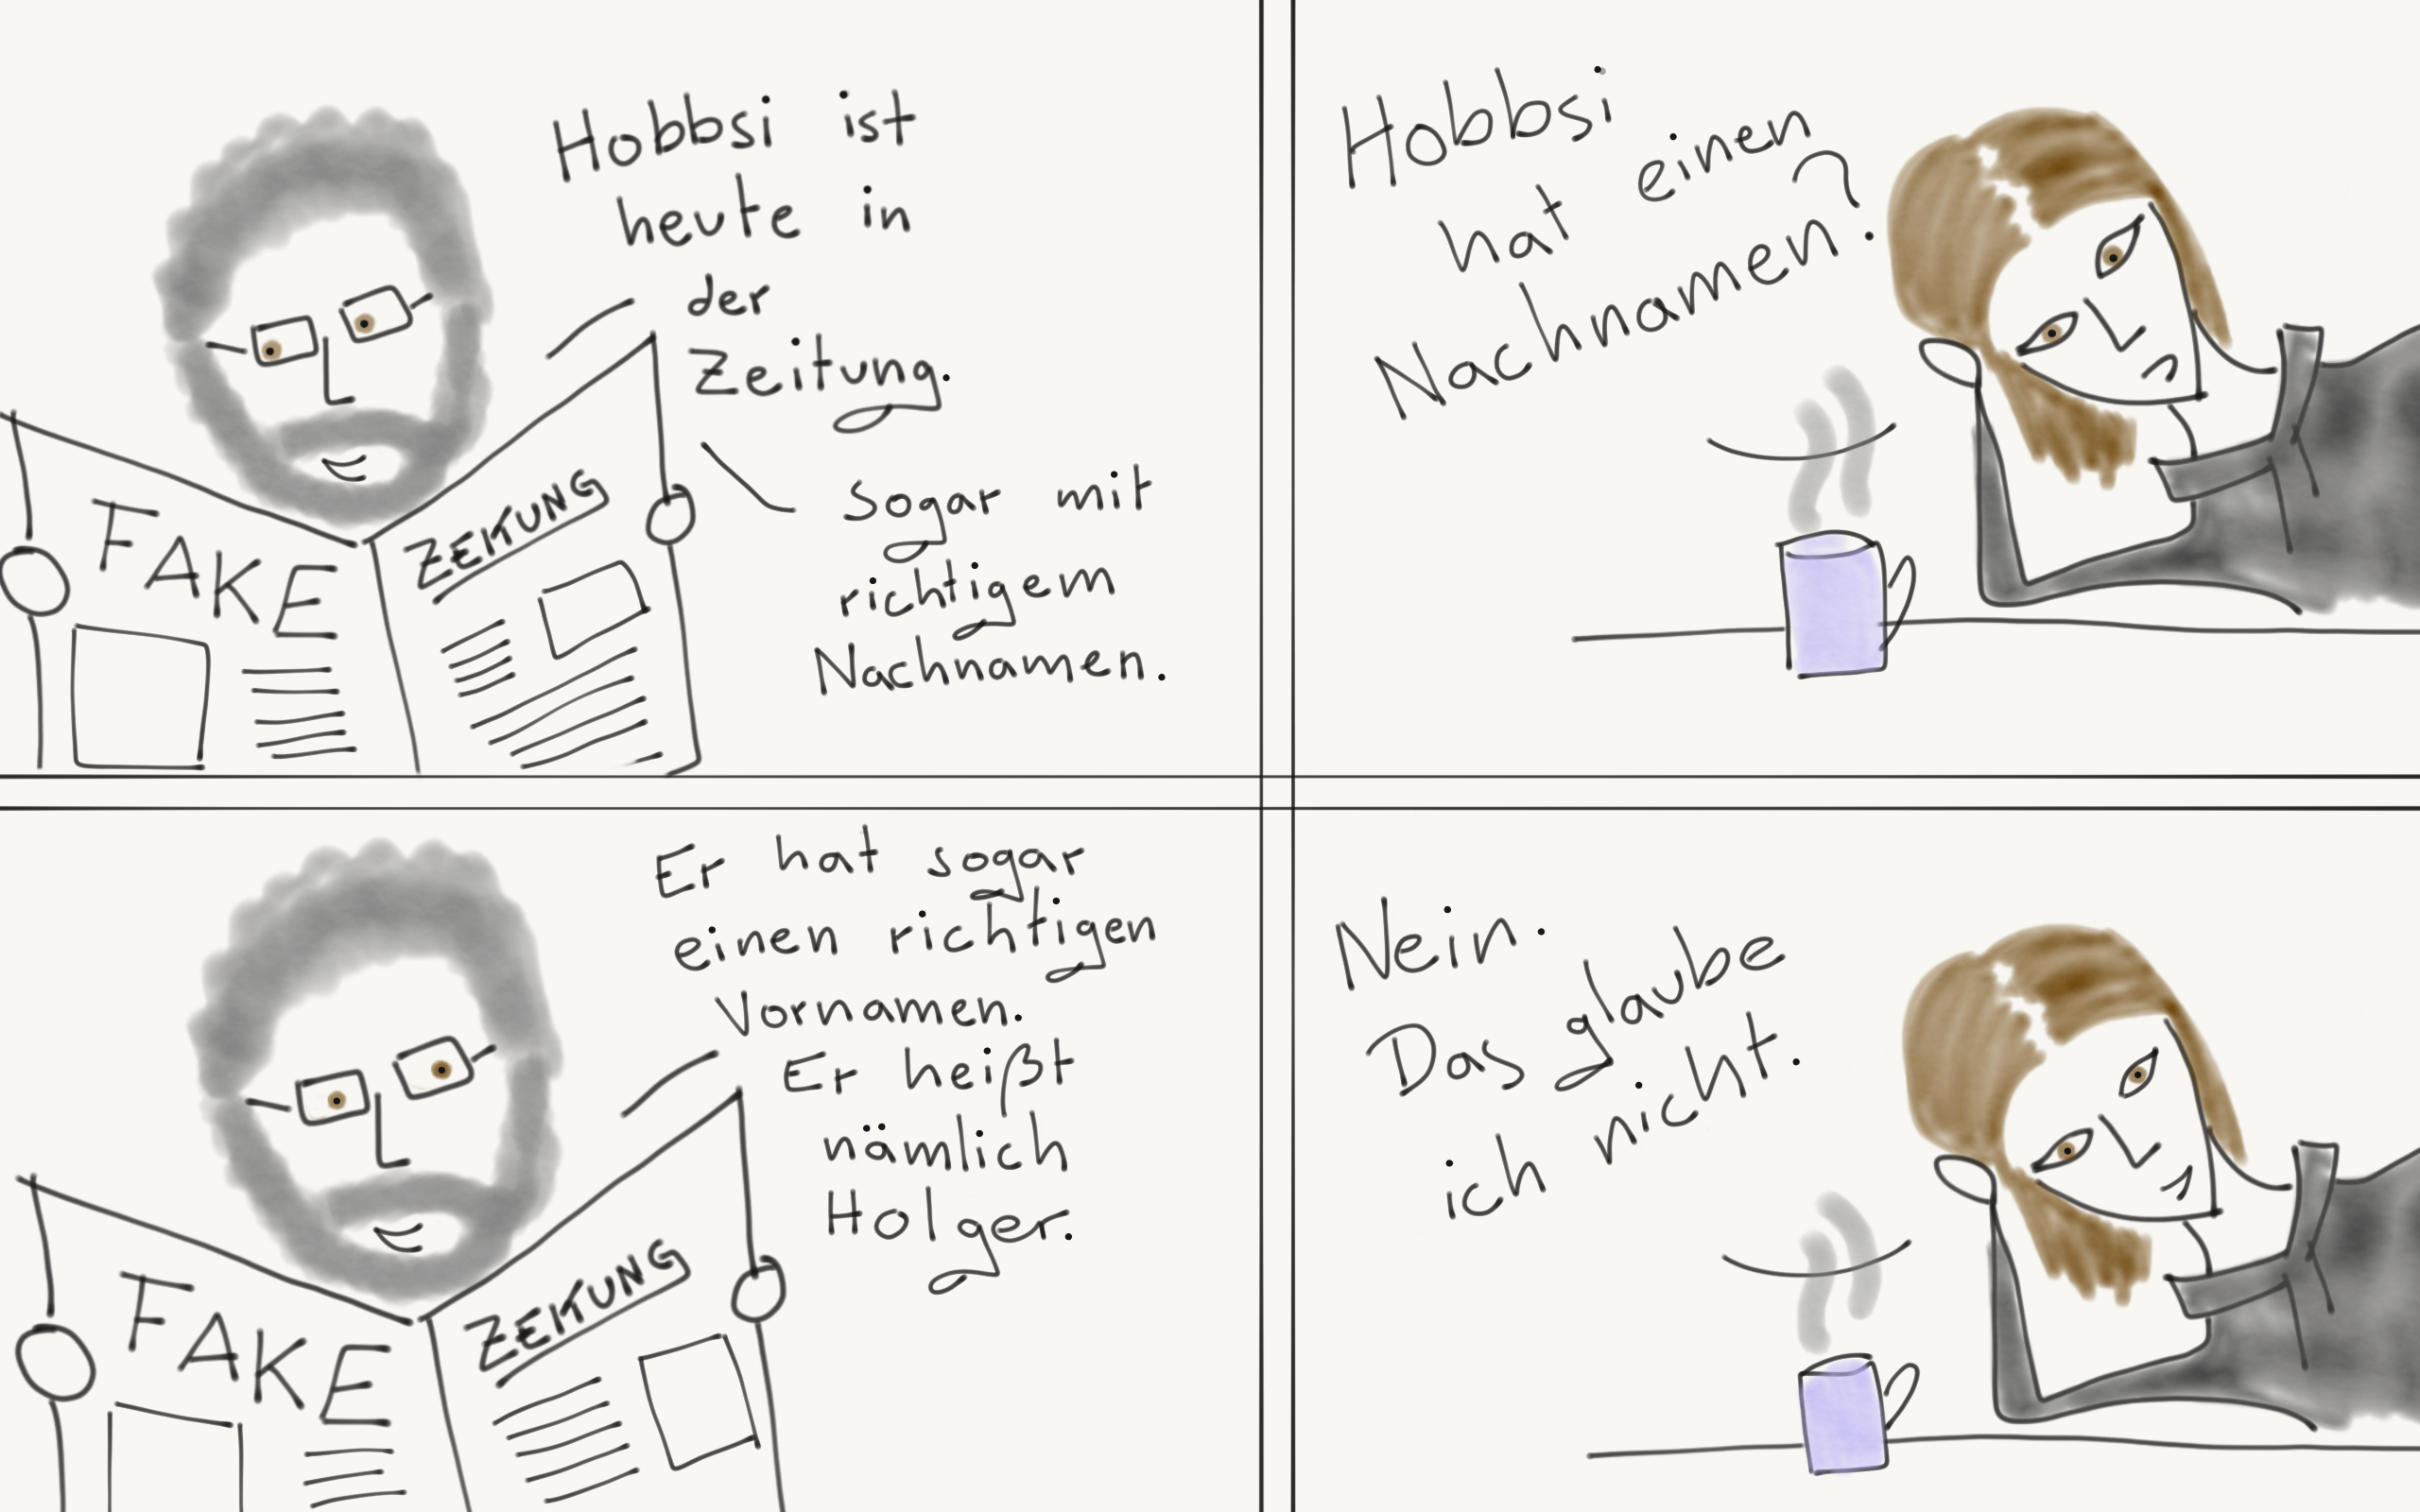 Hobbsi ist
heute in
der
Zeitung.
Sogar mit
richtigem
Nachnamen.
FAKE
ZEITUNG
Hobbsi
hat einen
Nachnamen?
Er hat sogar
einen richtigen
Vornamen.
Er heißt
nämlich
Holger.
FAKE
ZEITUNG
Nein.
Das glaube
ich nicht.